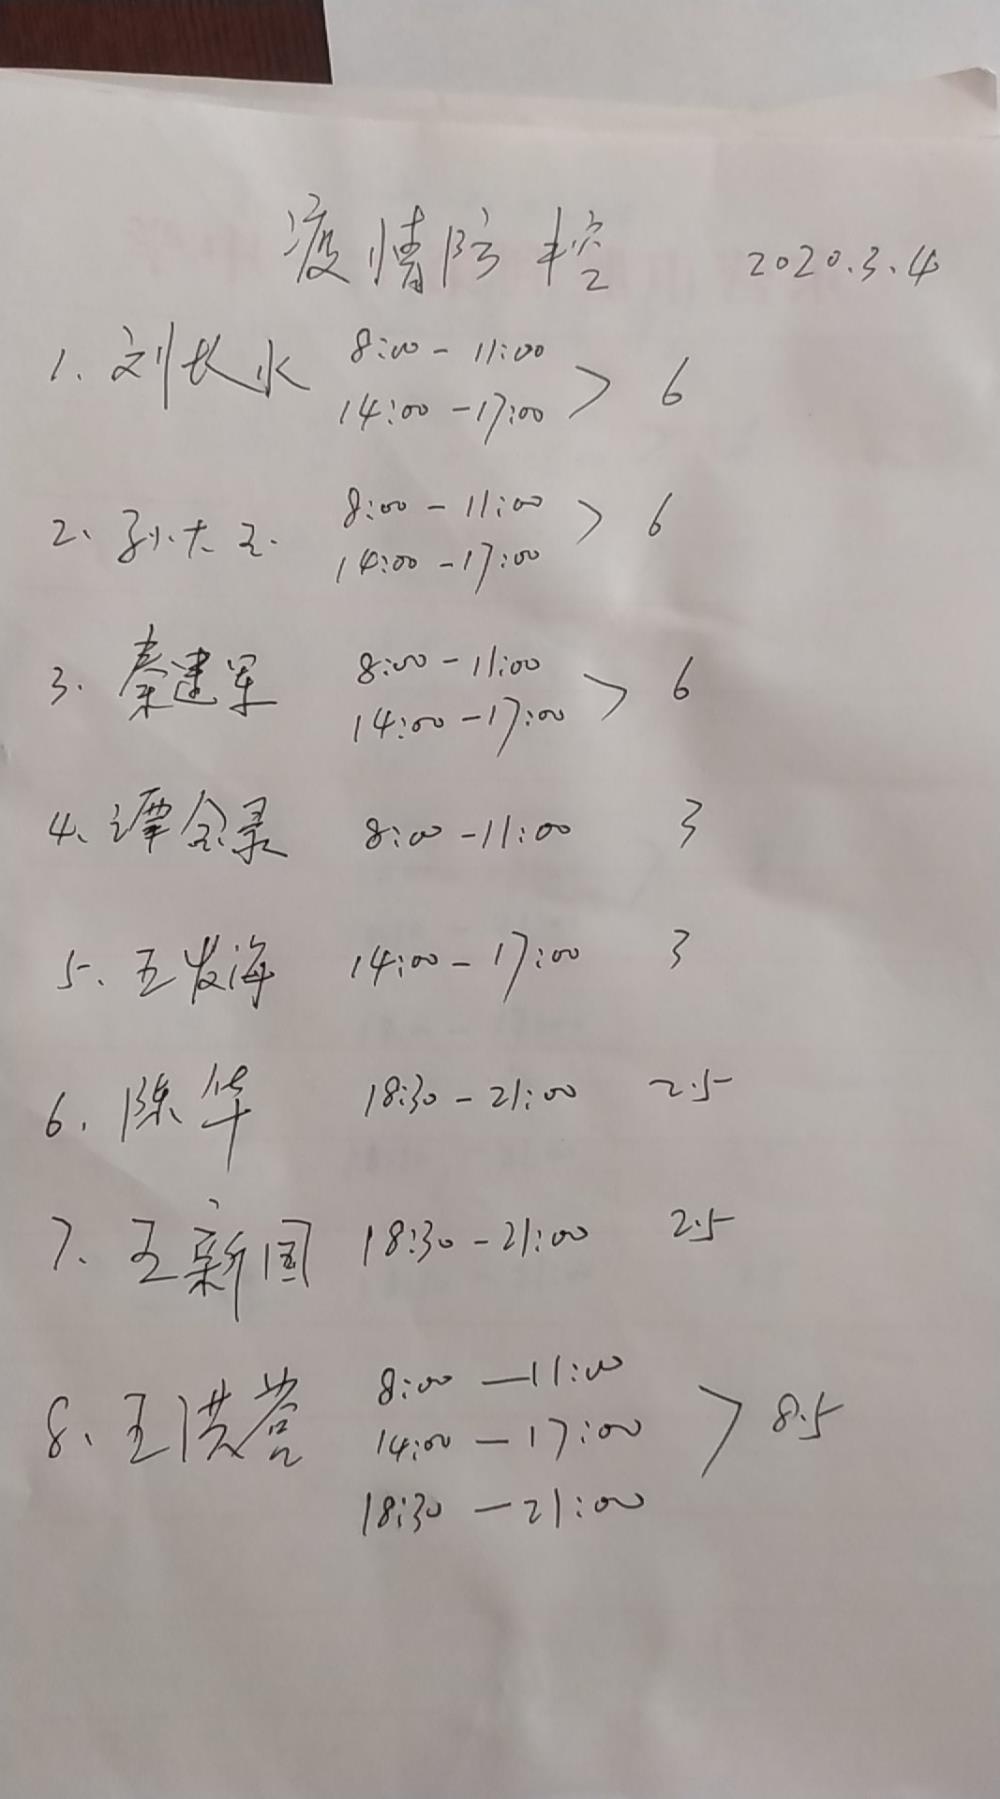 疫情防控 2020.3.4
1. 刘长水 8:00-11:00 > 6
14:00-17:00
2、孙大玉 8:00-11:00 > 6
14:00-17:00
3. 秦建军 8:00-11:00 > 6
14:00-17:00
4、谭金录 8:00-11:00 3
5、王发海 14:00-17:00 3
6. 陈华 18:30-21:00 2.5
7、王新国 18:30-21:00 2.5
8、王洪营 8:00-11:00
14:00-17:00 > 8.5
18:30-21:00